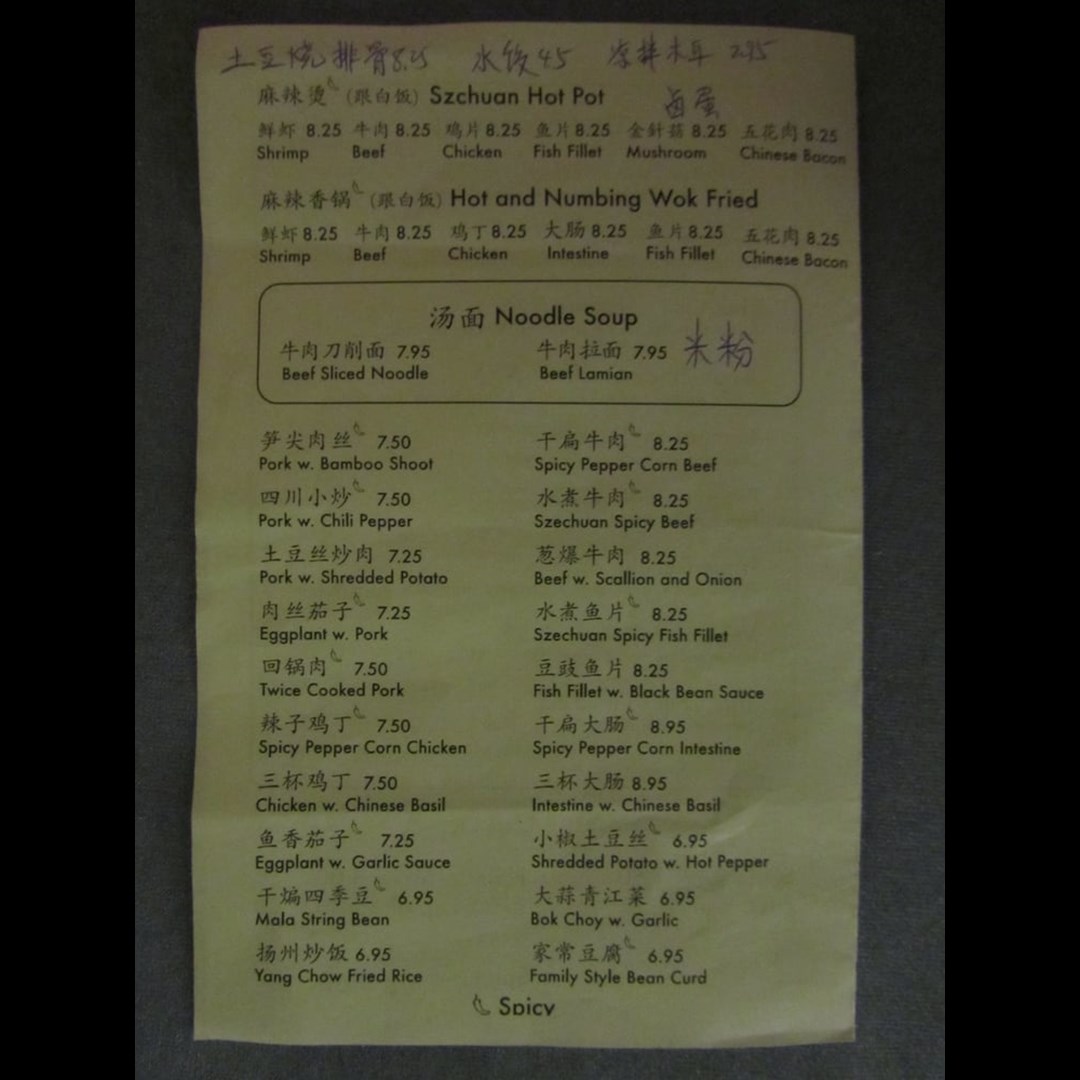 土豆烧排骨8.25 水饺45 凉拌木耳 2.95
麻辣烫 (跟白饭) Szchuan Hot Pot 卤蛋
鲜虾 8.25 牛肉 8.25 鸡片 8.25 鱼片 8.25 金針菇 8.25 五花肉 8.25
Shrimp Beef Chicken Fish Fillet Mushroom Chinese Bacon
麻辣香锅 (跟白饭) Hot and Numbing Wok Fried
鲜虾 8.25 牛肉 8.25 鸡丁 8.25 大肠 8.25 鱼片 8.25 五花肉 8.25
Shrimp Beef Chicken Intestine Fish Fillet Chinese Bacon
汤面 Noodle Soup
牛肉刀削面 7.95 牛肉拉面 7.95 米粉
Beef Sliced Noodle Beef Lamian
笋尖肉丝 7.50 干扁牛肉 8.25
Pork w. Bamboo Shoot Spicy Pepper Corn Beef
四川小炒 7.50 水煮牛肉 8.25
Pork w. Chili Pepper Szechuan Spicy Beef
土豆丝炒肉 7.25 葱爆牛肉 8.25
Pork w. Shredded Potato Beef w. Scallion and Onion
肉丝茄子 7.25 水煮鱼片 8.25
Eggplant w. Pork Szechuan Spicy Fish Fillet
回锅肉 7.50 豆豉鱼片 8.25
Twice Cooked Pork Fish Fillet w. Black Bean Sauce
辣子鸡丁 7.50 干扁大肠 8.95
Spicy Pepper Corn Chicken Spicy Pepper Corn Intestine
三杯鸡丁 7.50 三杯大肠 8.95
Chicken w. Chinese Basil Intestine w. Chinese Basil
鱼香茄子 7.25 小椒土豆丝 6.95
Eggplant w. Garlic Sauce Shredded Potato w. Hot Pepper
干煸四季豆 6.95 大蒜青江菜 6.95
Mala String Bean Bok Choy w. Garlic
扬州炒饭 6.95 家常豆腐 6.95
Yang Chow Fried Rice Family Style Bean Curd
Spicy